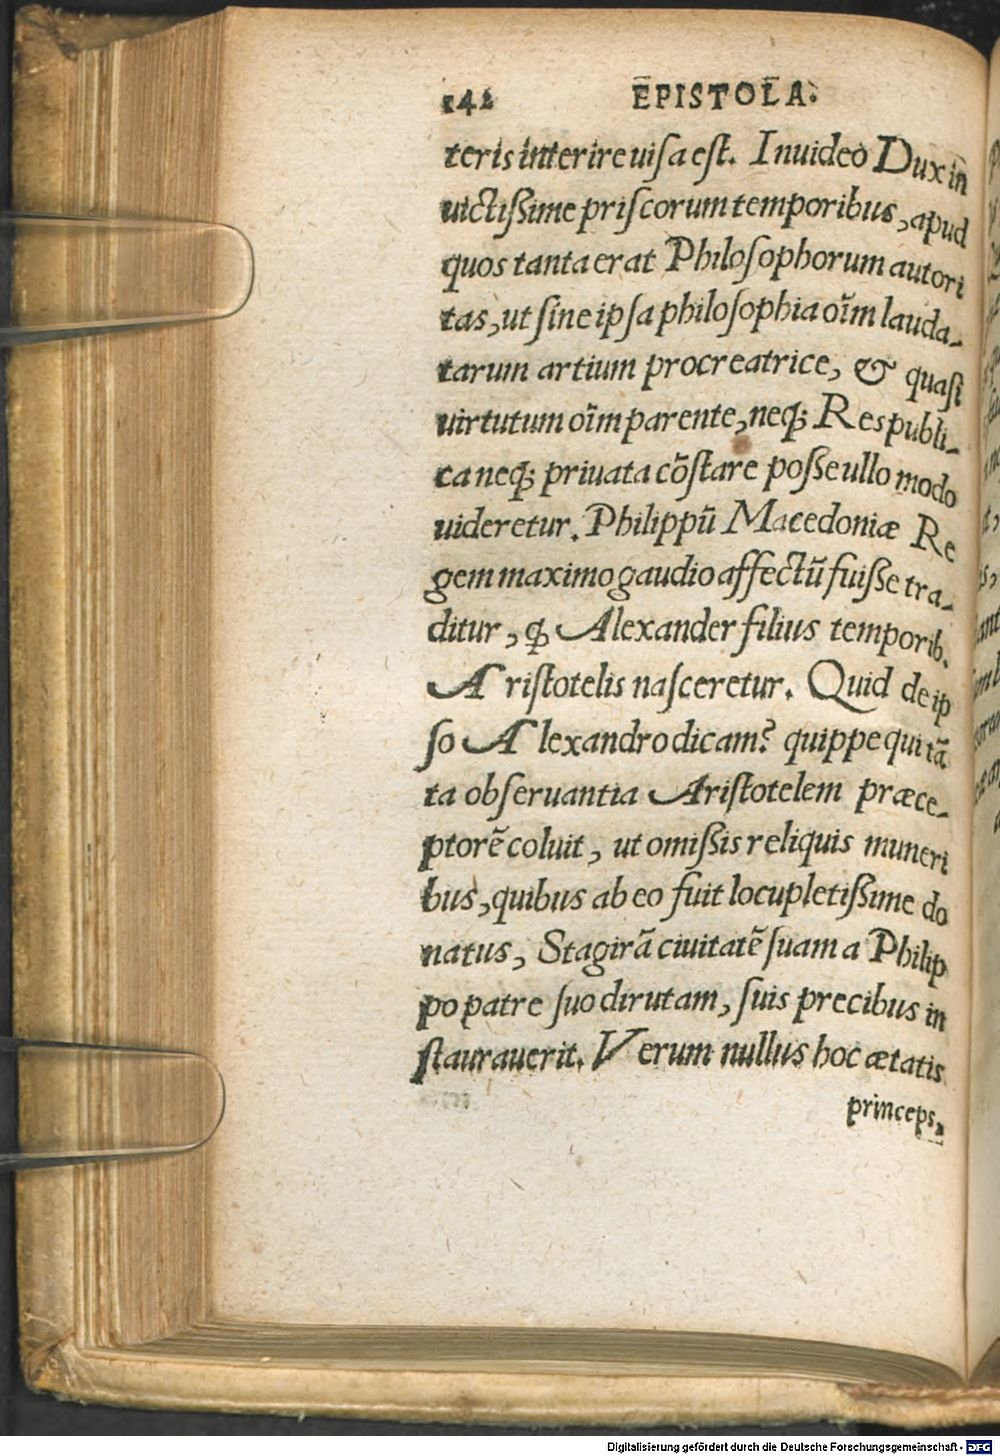 142 EPISTOLA.
teris interire uiſa eſt. Inuideo Dux in
uictiſſime priſcorum temporibus, apud
quos tanta erat Philoſophorum autori
tas, ut ſine ipſa philoſophia oīm lauda-
tarum artium procreatrice, & quaſi
uirtutum oīm parente, neq; Reſpubli-
ca neq; priuata cōſtare poſſe ullo modo
uideretur. Philippū Macedoniæ Re
gem maximo gaudio affectū fuiſſe tra-
ditur, ꝙ Alexander filius temporib.
Ariſtotelis naſceretur. Quid de ip
ſo Alexandro dicam? quippe qui tā
ta obſeruantia Ariſtotelem præce-
ptorē coluit, ut omiſſis reliquis muneri
bus, quibus ab eo fuit locupletiſſime do
natus, Stagirā ciuitatē ſuam a Philip
po patre ſuo dirutam, ſuis precibus in
ſtaurauerit. Verum nullus hoc ætatis
princeps,
Digitalisierung gefördert durch die Deutsche Forschungsgemeinschaft - DFG